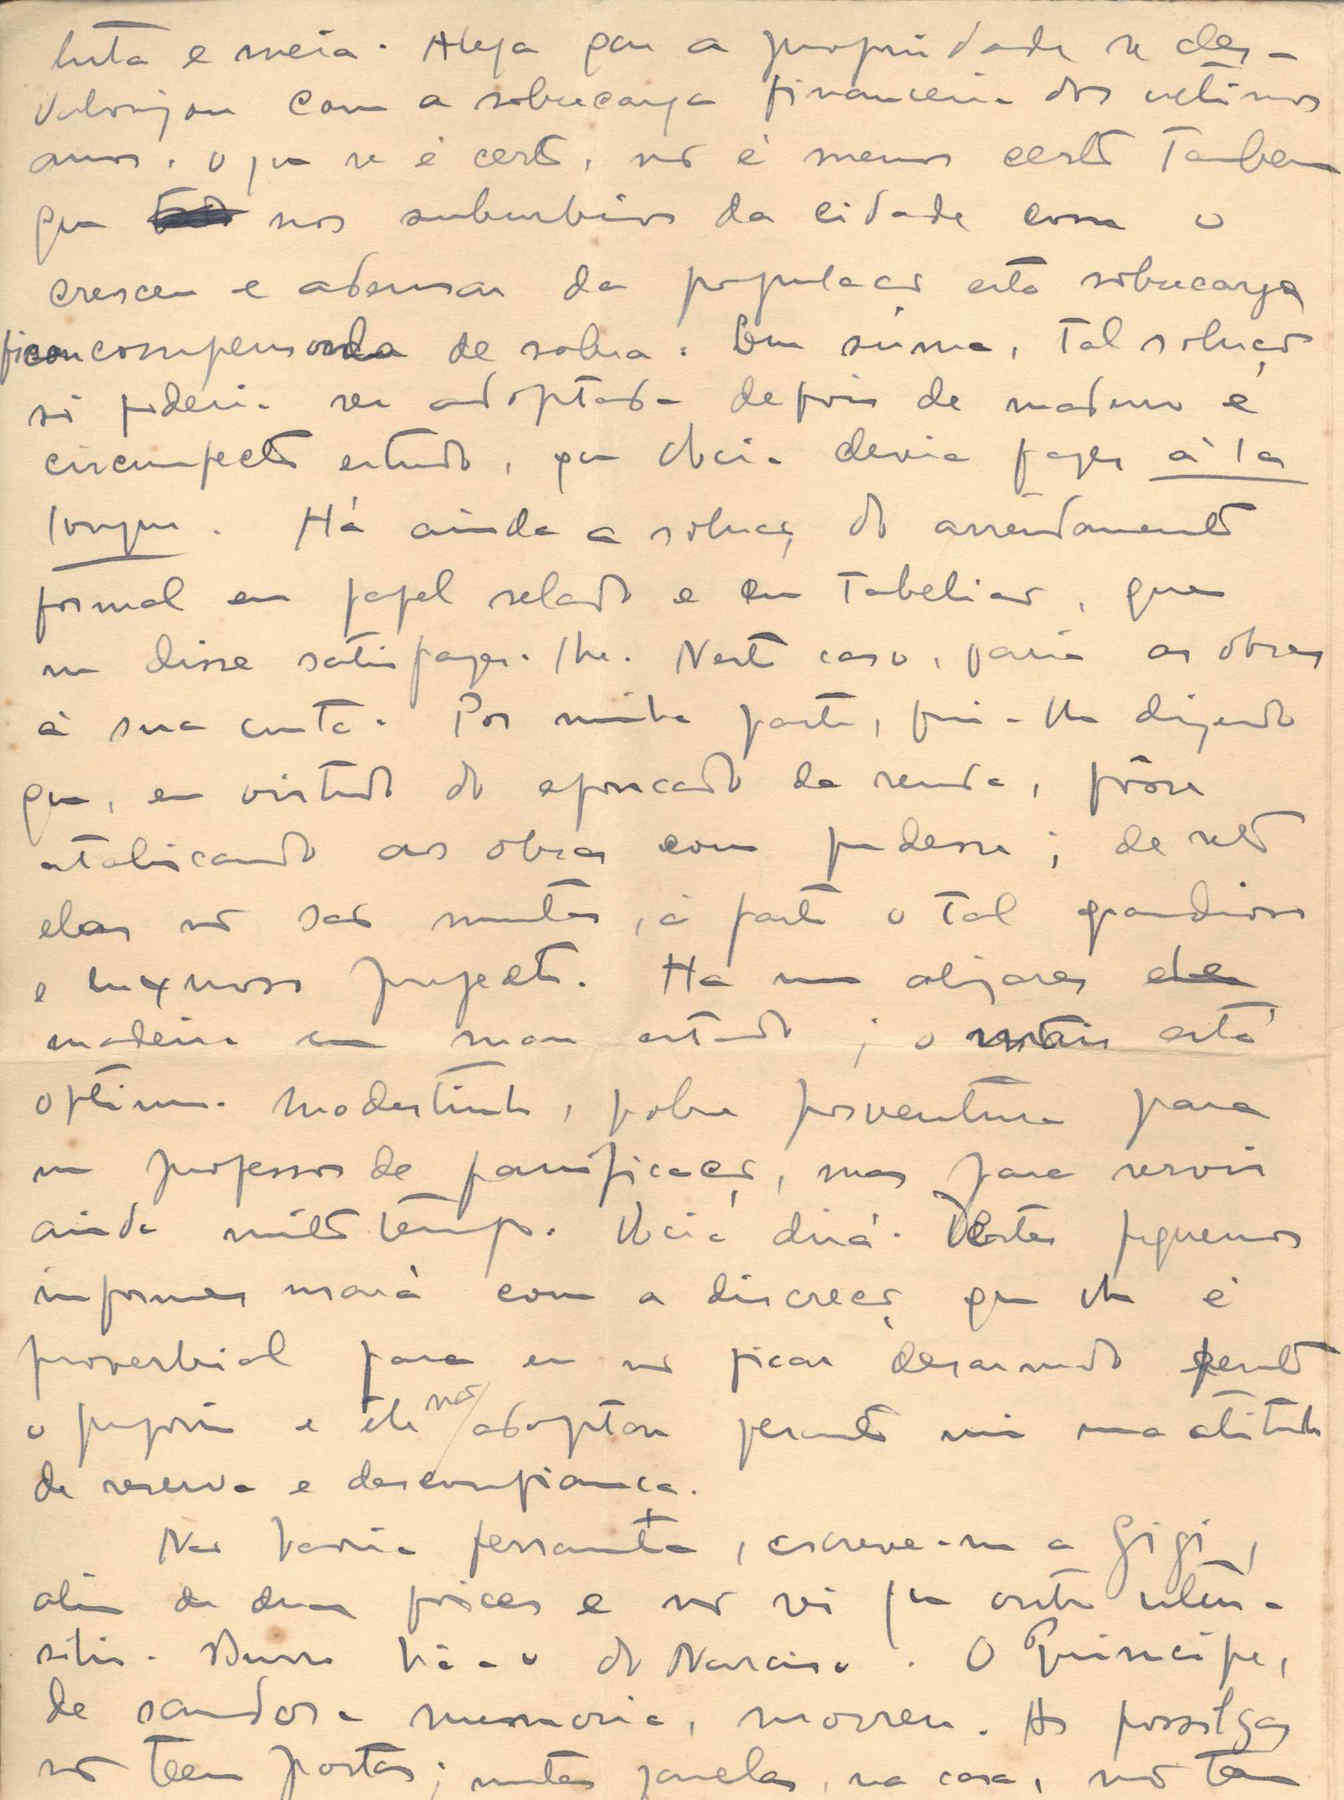 e meia. Alega que a propriedade se des-
valorizou com a sobrecarga financeira dos ultimos
anos. O que se é certo, não é menos certo tambem
que nos suburbios da cidade com o
crescer e adensar da população esta sobrecarga
ficou compensada de sobra. Em suma, tal solução
só poderia ser adoptada depois de maduro e
circunspecto estudo, que devia fazer à la
longue. Há ainda a solução do arrendamento
formal em papel selado e em tabelião, que
me disse satisfazer-lhe. Neste caso, faria as obras
à sua custa. Por minha parte, fui-lhe dizendo
que, em virtude do da renda, fôsse
as obras como pudesse; de resto
elas não são muitas, à parte o tal grandioso
e luxuoso projecto. Ha uns alizares de
madeira em mau estado; o mais está
optimo. Modestinho, pobre porventura para
um professor de panificação, mas para servir
ainda muito tempo. dirá. Destes pequenos
informes usará com a discreção que lhe é
proverbial para eu não ficar desarmado perante
o proprio e êle não adoptar perante mim uma atitude
de reserva e desconfiança.
Não havia ferramenta, escreve-me a Gigi,
alem de duas foices e não vi que outro uten-
silio. Burro há-o do Narciso. O Principe,
de saudosa memoria, morreu. As possilgas
não teem portas; muitas janelas, na casa, não teem